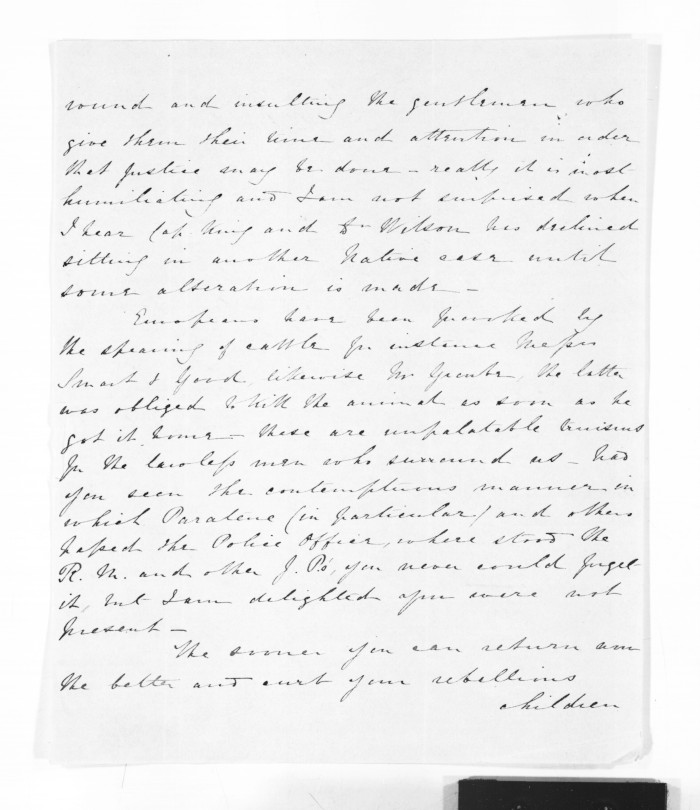 round and insulting the gentlemen who
give them their time and attention in order
that justice may be done - really it is most
humiliating and I am not surprised when
I hear Cap King and Dr Wilson has declined
sitting in another Native case until
some alteration is made -
Europeans have been provoked by
the spearing of cattle for instance Messrs
Smart & Good, likewise Mr the latter
was obliged to kill the animal as soon as he
got it home - these are unpalatable truisms
for the lawless men who surround us - had
you seen the contemptuous manner in
which Paratene (in particular) and others
passed the Police Office, where stood the
R. M. and other J. P's, you never could forget
it, but I am delighted you were not
present -
The sooner you can return now
the better and curb your rebellious
children